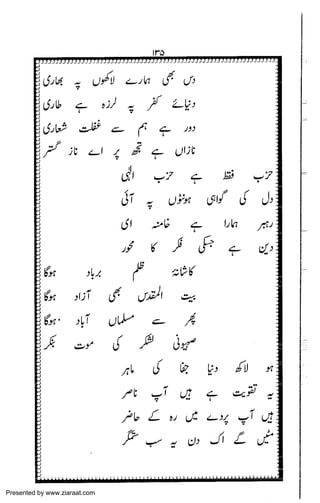 ۱۳۵
دس بھی ہمارے لاکھوں پہ بھاری
دنیائے کفر پہ لرزہ ہے طاری
دور ہے ہم سے غفلت شعاری
نازاں ہے تجھ پر اے ناز گستر
حزب فقط ہے حزب الٰہی
دل کی گواہی ہونٹوں پہ آئی
رہبر ہمارا ہے خامنہ ای
دین ہے جسکی فکر کا محور
کاشانۂ ظلم برباد ہوگا
بیت المقدس بھی آزاد ہوگا
پھر سے مسلماں آباد ہوگا۔
صیہونی لشکر کی موت بنکر
ہو لاکھ دنیا جفا کی ماہر
یہ تقویت ہے ہیں آپ ناصر
ہیں آپ پردے میں رہ کے حاضر
مٹیں گے اک دن یہ سب ستمگر
Presented by www.ziaraat.com